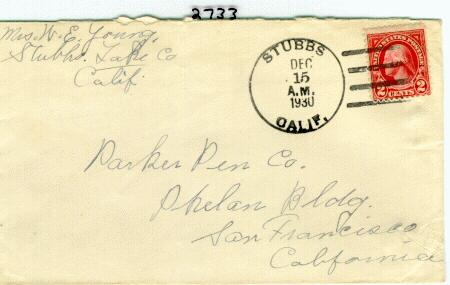 2733
Mrs. W. E. Young,
Stubbs. Lake Co
Calif.
STUBBS
DEC
15
A.M.
1930
CALIF.
UNITED STATES POSTAGE
2 CENTS 2
Parker Pen Co.
Phelan Bldg.
San Francisco
California